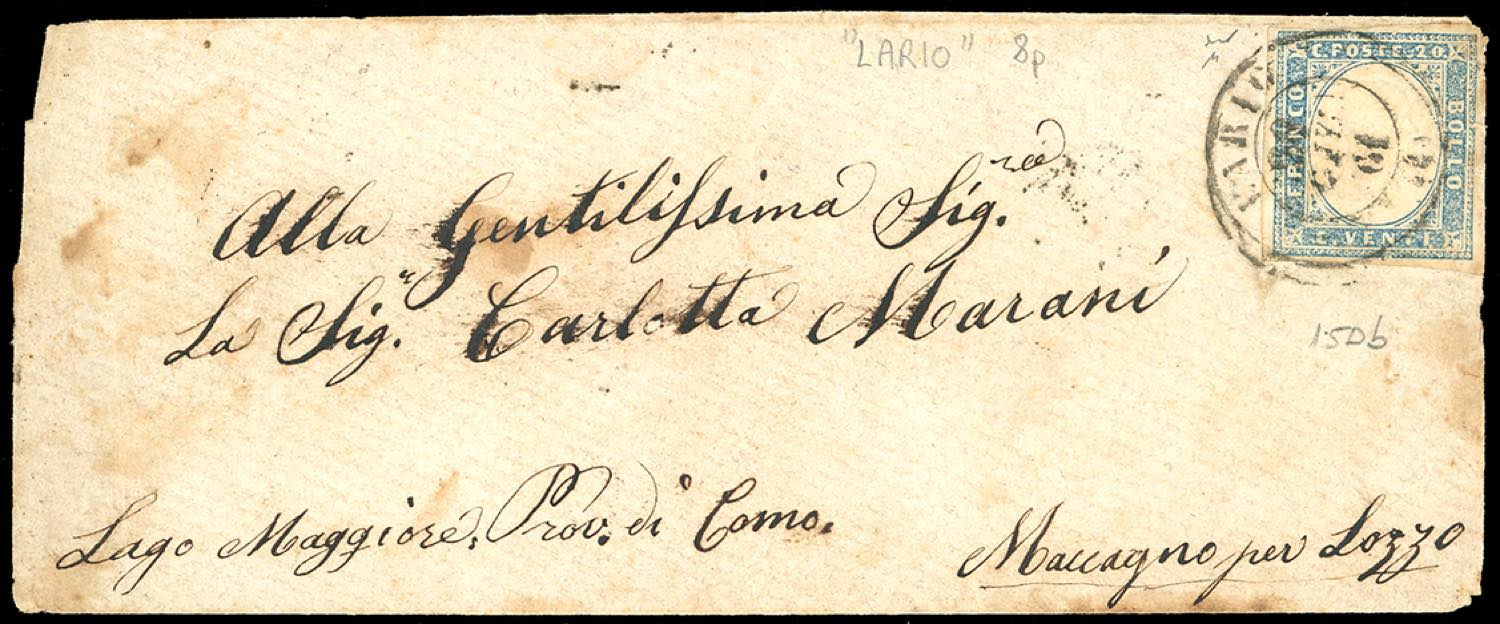 "LARIO" 8p
C. POSTE. 20.
FRANCO
BOLLO
C. VENTI
LARIO
19
Alla Gentilissima Sig.ra
La Sig.ra Carlotta Marani
15Db
Lago Maggiore. Prov. di Como.
Maccagno per Lozzo